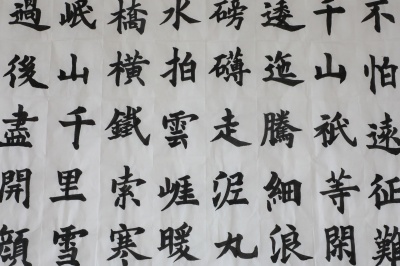 不怕遠征難
千山祇等閑
逶迤騰細浪
磅礴走泥丸
水拍雲崕暖
橋橫鐵索寒
岷山千里雪
過後盡開顔